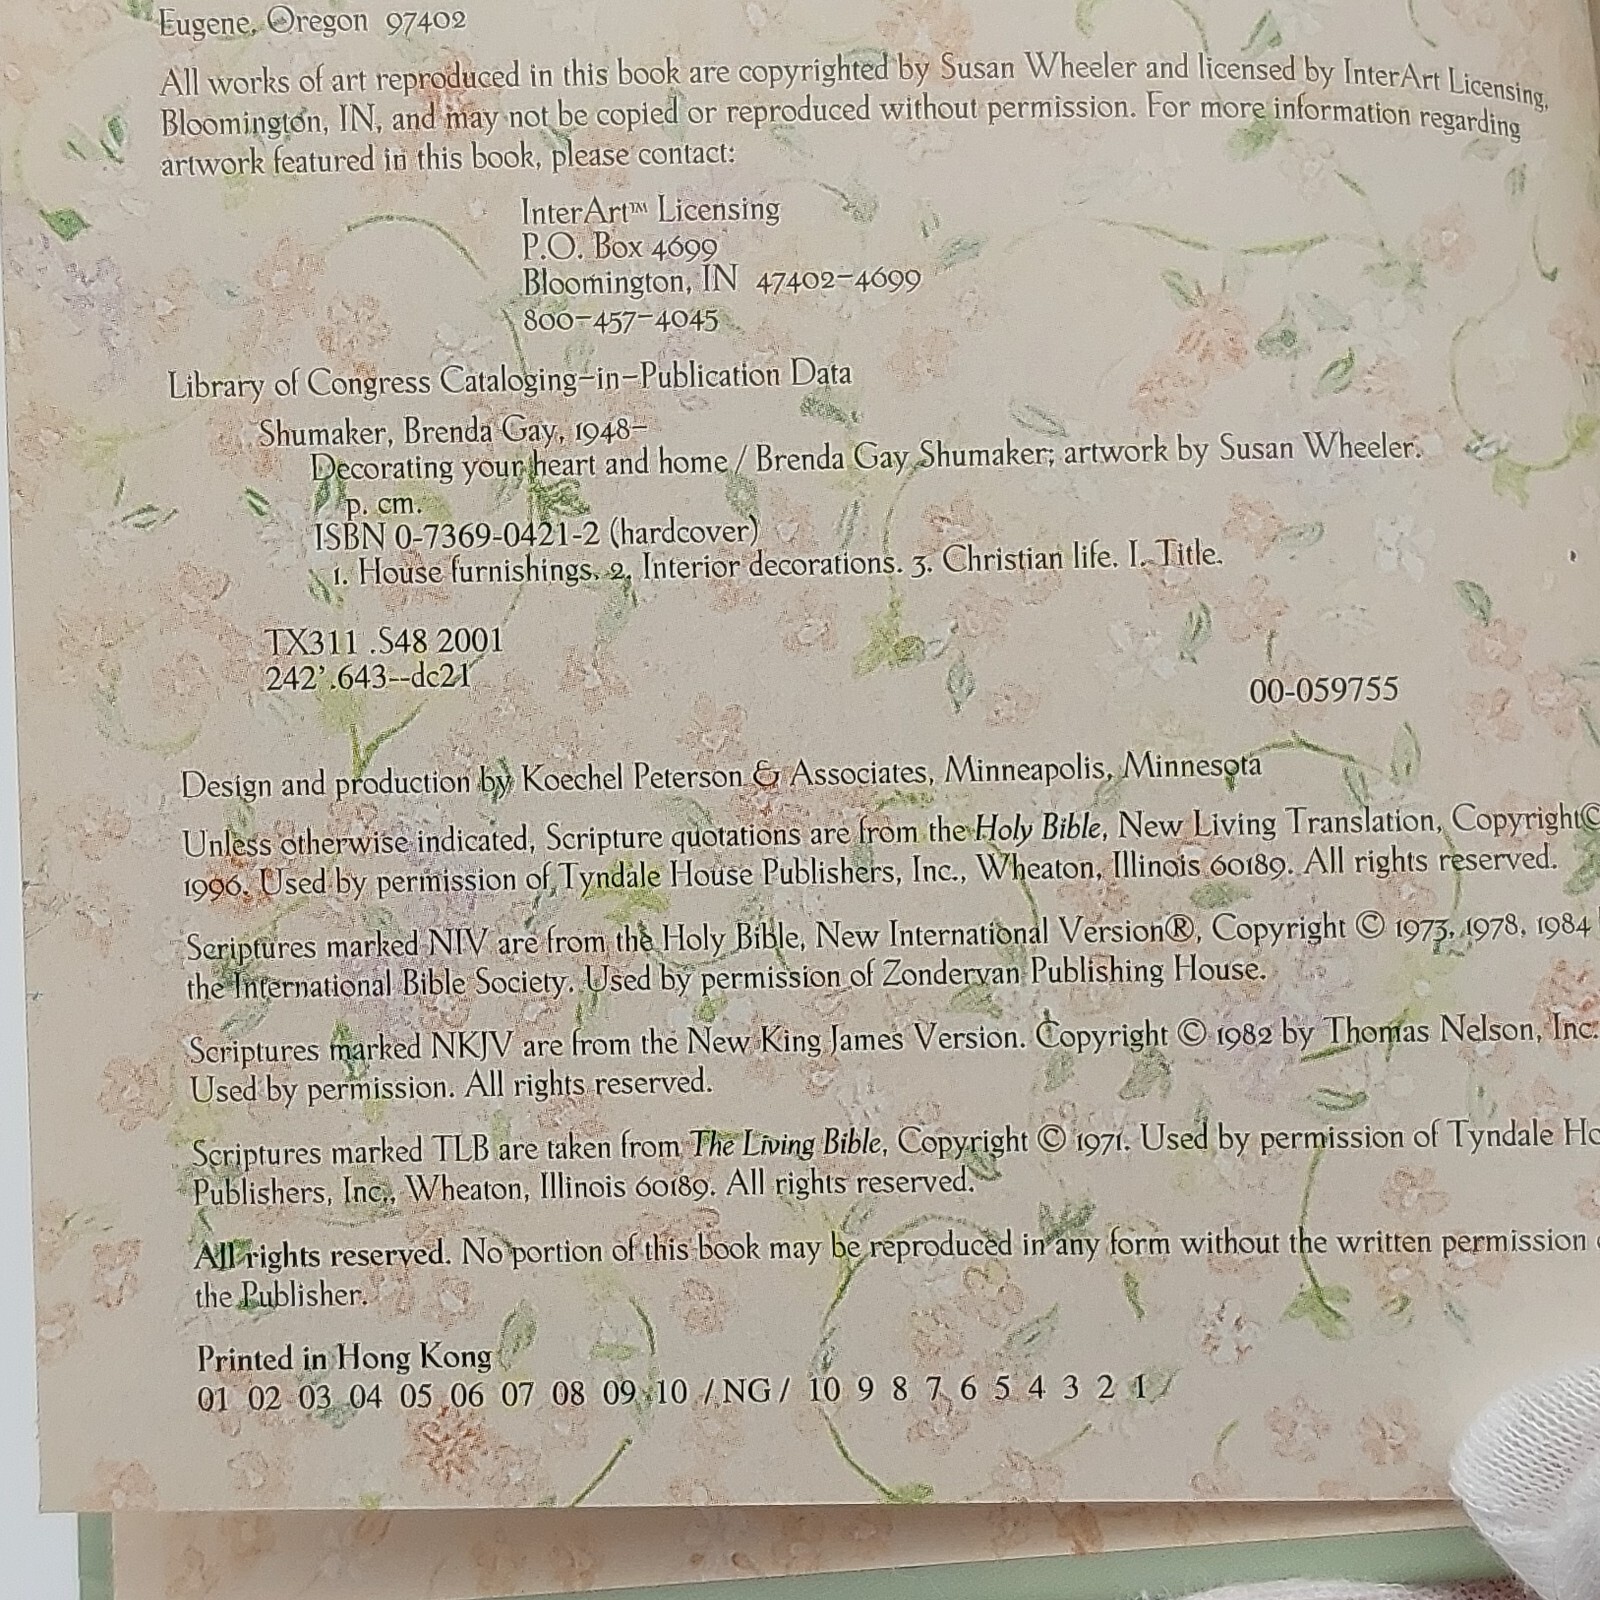 Eugene, Oregon 97402
All works of art reproduced in this book are copyrighted by Susan Wheeler and licensed by InterArt Licensing,
Bloomington, IN, and may not be copied or reproduced without permission. For more information regarding
artwork featured in this book, please contact:
InterArt™ Licensing
P.O. Box 4699
Bloomington, IN 47402-4699
800-457-4045
Library of Congress Cataloging-in-Publication Data
Shumaker, Brenda Gay, 1948-
Decorating your heart and home / Brenda Gay Shumaker; artwork by Susan Wheeler.
p. cm.
ISBN 0-7369-0421-2 (hardcover)
1. House furnishings. 2. Interior decorations. 3. Christian life. I. Title.
TX311 .S48 2001
242'.643--dc21
00-059755
Design and production by Koechel Peterson & Associates, Minneapolis, Minnesota
Unless otherwise indicated, Scripture quotations are from the Holy Bible, New Living Translation, Copyright©
1996. Used by permission of Tyndale House Publishers, Inc., Wheaton, Illinois 60189. All rights reserved.
Scriptures marked NIV are from the Holy Bible, New International Version®, Copyright © 1973, 1978, 1984
the International Bible Society. Used by permission of Zondervan Publishing House.
Scriptures marked NKJV are from the New King James Version. Copyright © 1982 by Thomas Nelson, Inc.
Used by permission. All rights reserved.
Scriptures marked TLB are taken from The Living Bible, Copyright © 1971. Used by permission of Tyndale Ho
Publishers, Inc., Wheaton, Illinois 60189. All rights reserved.
All rights reserved. No portion of this book may be reproduced in any form without the written permission
the Publisher.
Printed in Hong Kong
01 02 03 04 05 06 07 08 09 10 / NG / 10 9 8 7 6 5 4 3 2 1